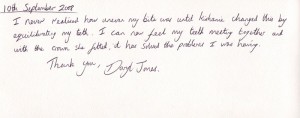 10th September 2008
I never realised how uneven my bite was until changed this by
equilibrating my teeth. I can now feel my teeth meeting together and
with the crown she fitted, it has solved the problems I was having.
Thank you, Daryl Jones.